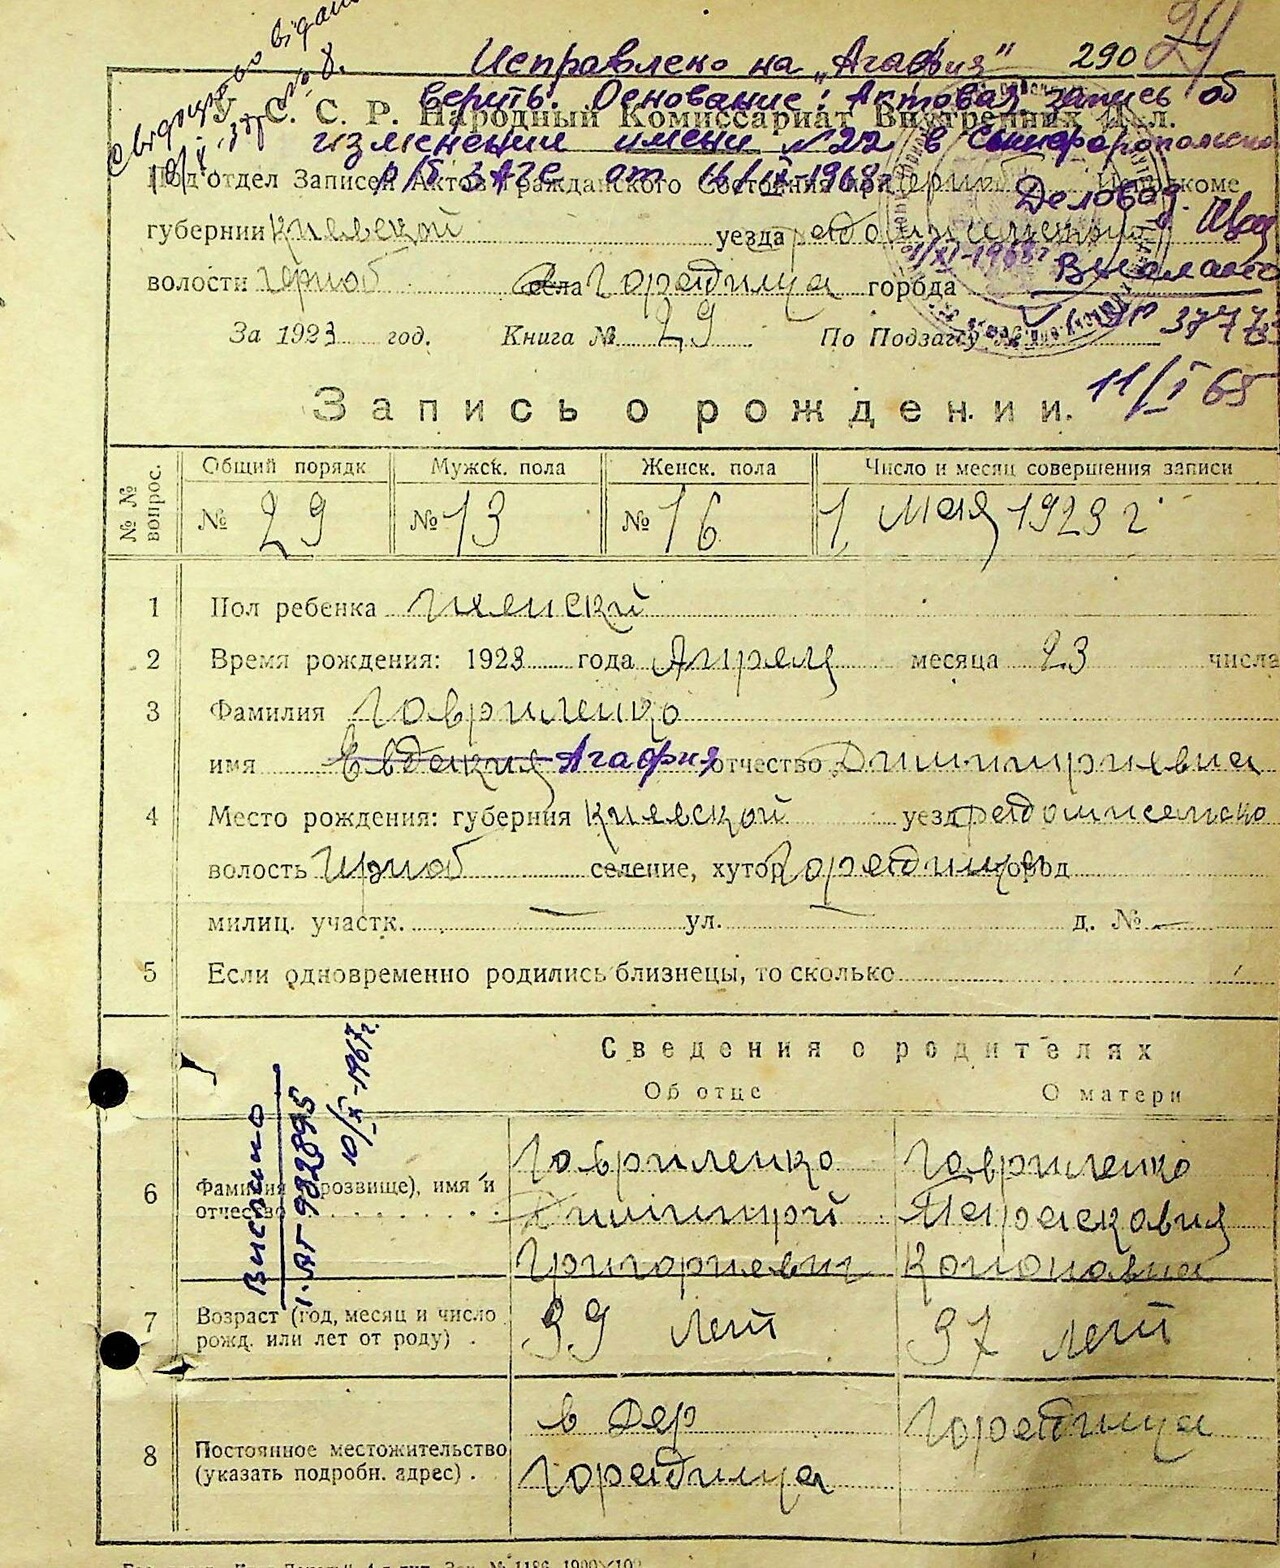 Исправлено на „Агафия" 290 29
верить. Основание: Актовая запись об
У. С. С. Р. Народный Комиссариат Внутренних Дел.
изменении имени №22 в Симферопольском
р/б ЗАГС от 16/IX-1968г
Под'отдел Записей Актов Гражданского Состояния при Исполкоме
губернии Киевской уезда
волости Черноб села Городища города
За 1923 год. Книга № 29 По Подзагсу №
11/I 65
Запись о рождении.
№ № вопрос.
Общий порядк Мужск. пола Женск. пола Число и месяц совершения записи
№ 29 № 13 № 16 1 мая 1923 г
1 Пол ребенка женский
2 Время рождения: 1923 года Апреля месяца 23 числа
3 Фамилия Гавриленко
имя Евдокия Агафия отчество Димитриевна
4 Место рождения: губерния Киевской уезд
волость Черноб селение, хутор Городище город
милиц. участк. — ул. — д. № —
5 Если одновременно родились близнецы, то сколько
Сведения о родителях
Об отце О матери
Выслано
I-АГ-982895
10/IX-1967г.
Гавриленко Гавриленко
6 Фамилия (прозвище), имя и
отчество Димитрий Параскавия
Григориевич Кононовна
7 Возраст (год, месяц и число
рожд. или лет от роду) . 39 лет 37 лет
в дер Городища
8 Постоянное местожительство
(указать подробн. адрес) . Горадища